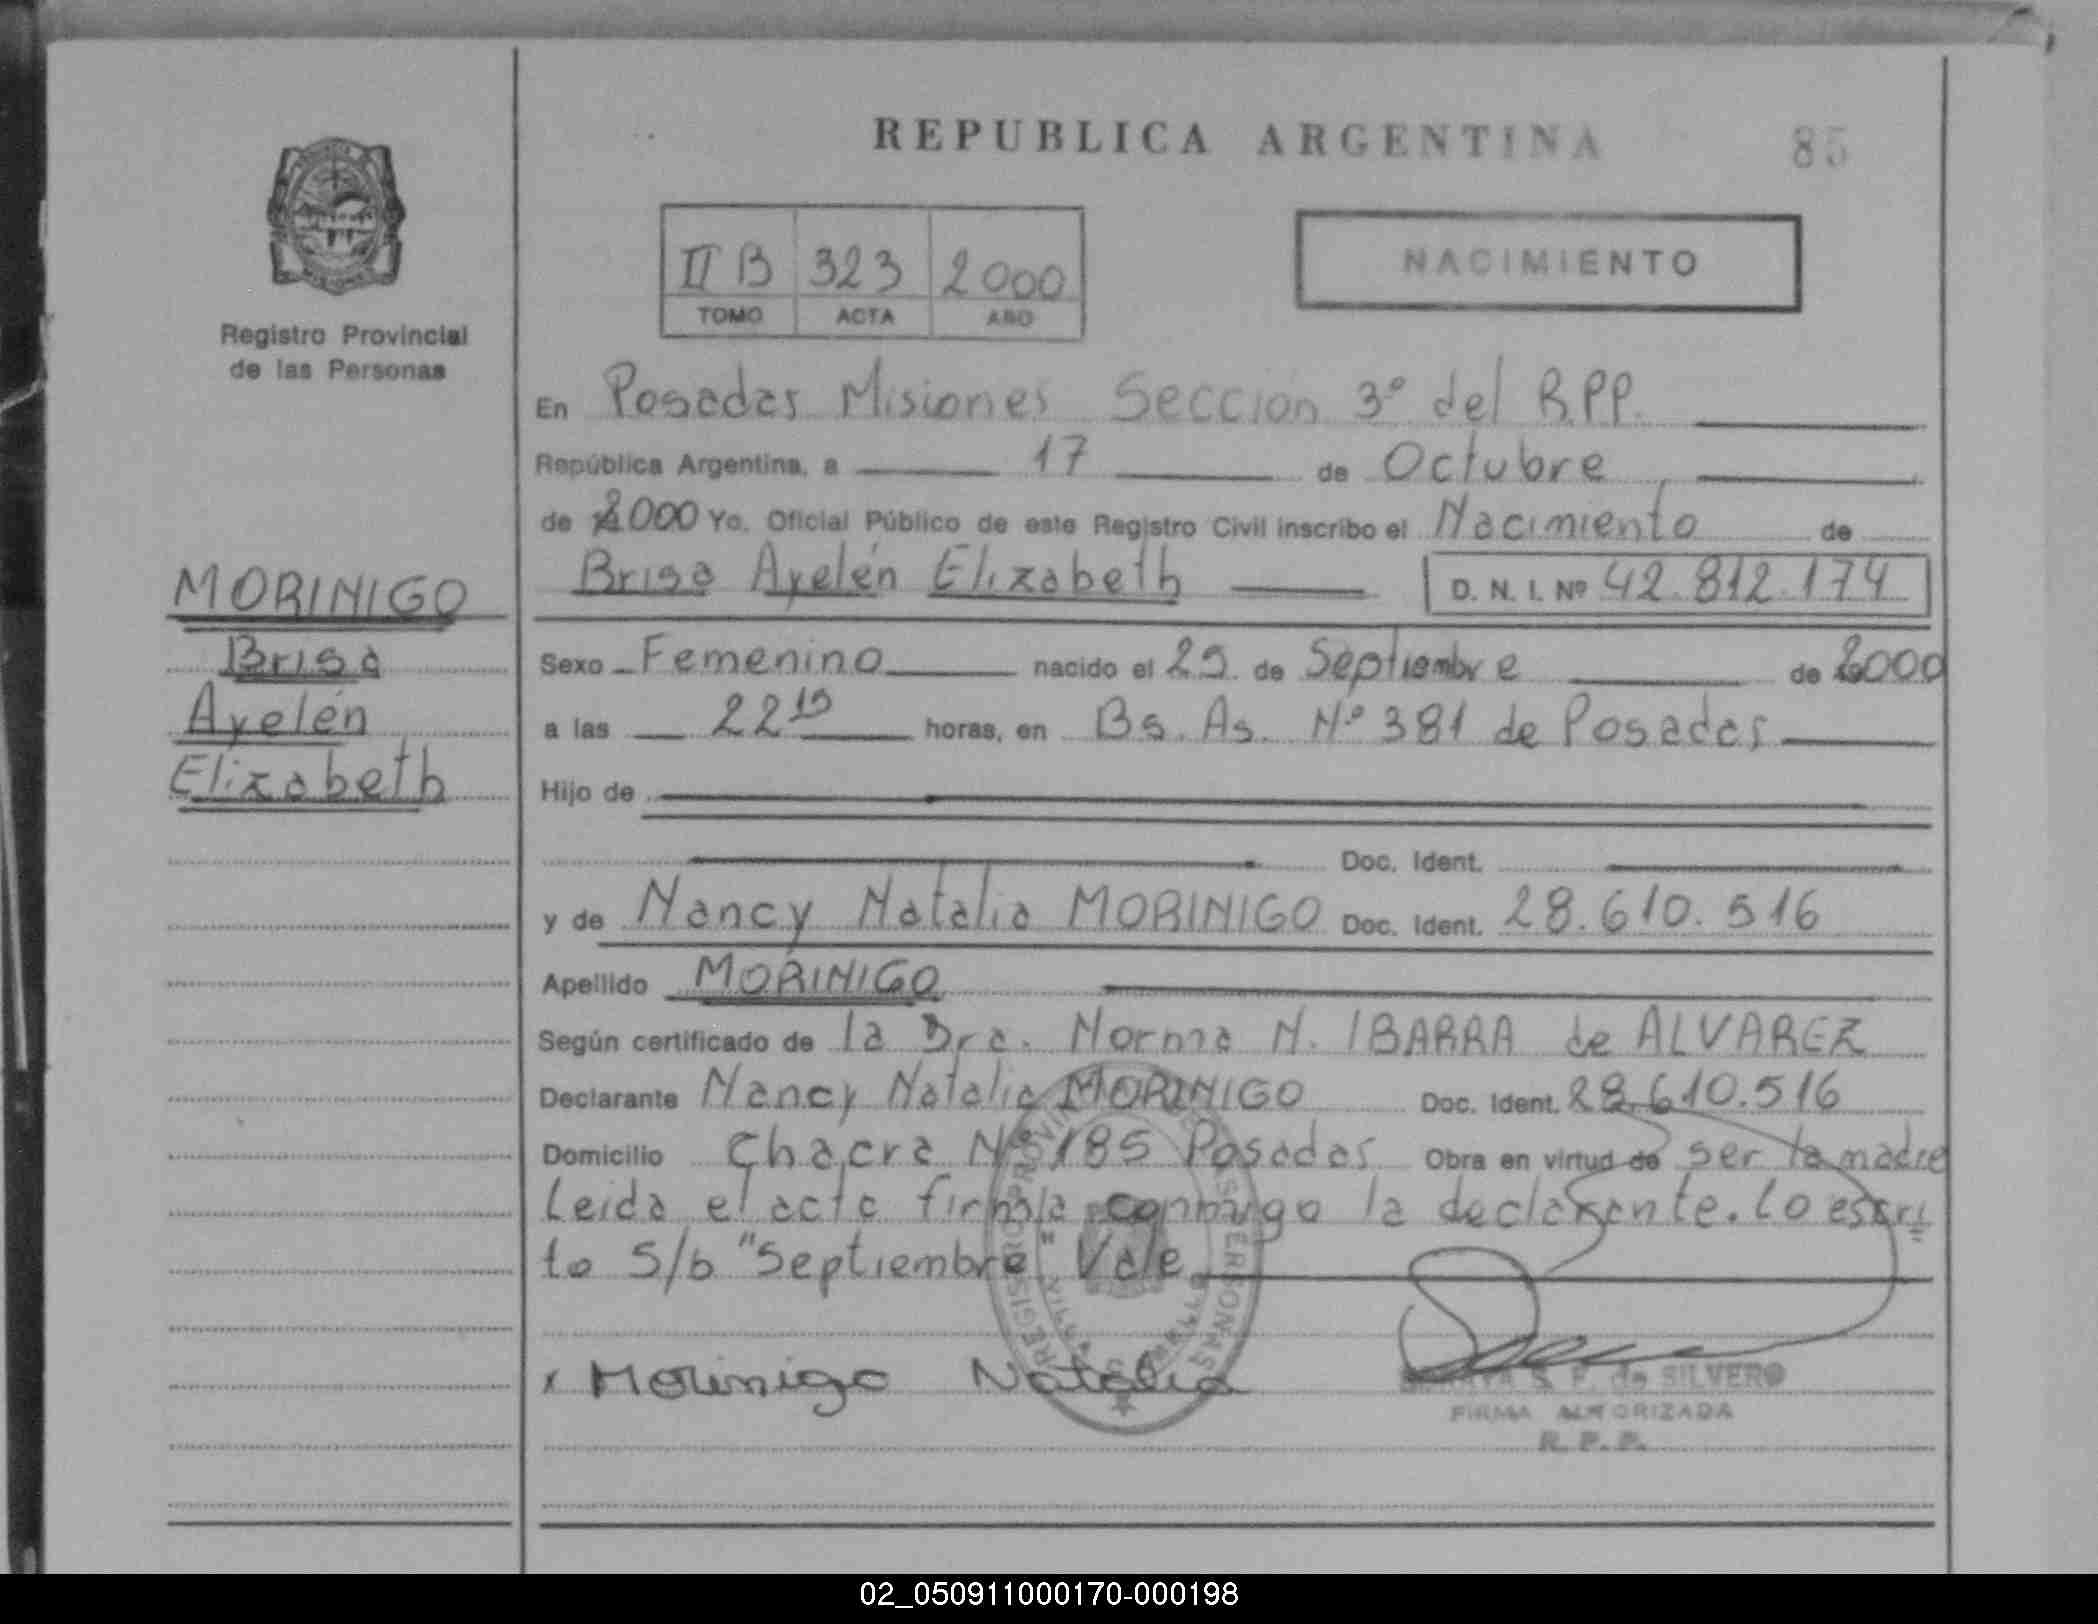 REPUBLICA ARGENTINA
85
II B 323 2000
TOMO ACTA AÑO
NACIMIENTO
Registro Provincial
de las Personas
En Posadas Misiones Sección 3º del R.P.P.
República Argentina, a 17 de Octubre
de 2000 Yo, Oficial Público de este Registro Civil inscribo el Nacimiento de
Brisa Ayelén Elizabeth D. N. I. Nº 42.812.174
MORINIGO
Brisa
Ayelén
Elizabeth
Sexo Femenino nacido el 29 de Septiembre de 2000
a las 22 15 horas, en Bs. As. Nº 381 de Posadas
Hijo de
Doc. Ident.
y de Nancy Natalia MORINIGO Doc. Ident. 28.610.516
Apellido MORINIGO
Según certificado de la Dra. Norma N. IBARRA de ALVAREZ
Declarante Nancy Natalia MORINIGO Doc. Ident. 28.610.516
Domicilio Chacra Nº 185 Posadas Obra en virtud de ser la madre
Leida el acta firmala conmigo la declarante. Lo escri
to S/b "Septiembre" Vale
x Morinigo Natalia
S. F. de SILVERO
FIRMA AUTORIZADA
R. P. P.
02_050911000170-000198